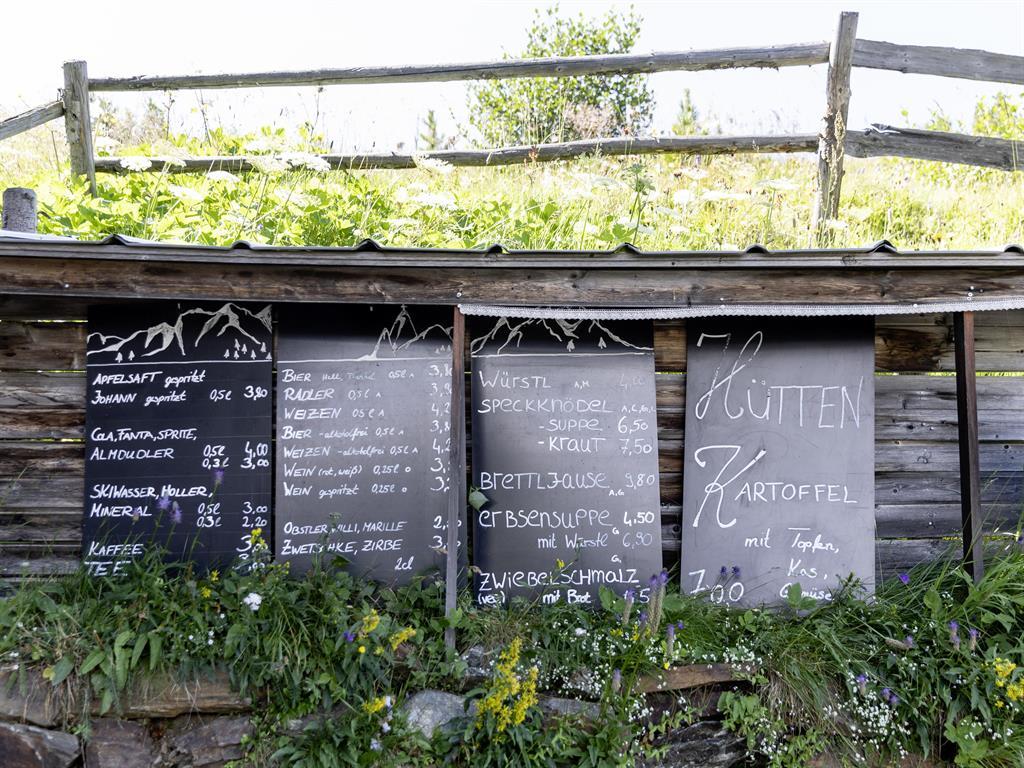 APFELSAFT gespritzt
JOHANN gespritzt 0,5l 3,80
COLA, FANTA, SPRITE,
ALMDUDLER 0,5l 4,00
0,3l 3,00
SKIWASSER, HOLLER,
MINERAL 0,5l 3,00
0,3l 2,20
KAFFEE
TEE
BIER 0,5l A
RADLER 0,5l A
WEIZEN 0,5l A
BIER -alkoholfrei 0,5l A
WEIZEN -alkoholfrei 0,5l A
WEIN (rot, weiß) 0,25l O
WEIN gespritzt 0,25l O
OBSTLER, WILLI, MARILLE
ZWETSCHKE, ZIRBE
2cl
WÜRSTL A,M 4,00
SPECKKNÖDEL
-SUPPE 6,50
-KRAUT 7,50
BRETTLJAUSE A,G 9,80
ERBSENSUPPE 4,50
mit Würstl 6,90
ZWIEBELSCHMALZ
mit Brot
HÜTTEN
KARTOFFEL
mit Topfen,
Käs,
7,00 Gemüse